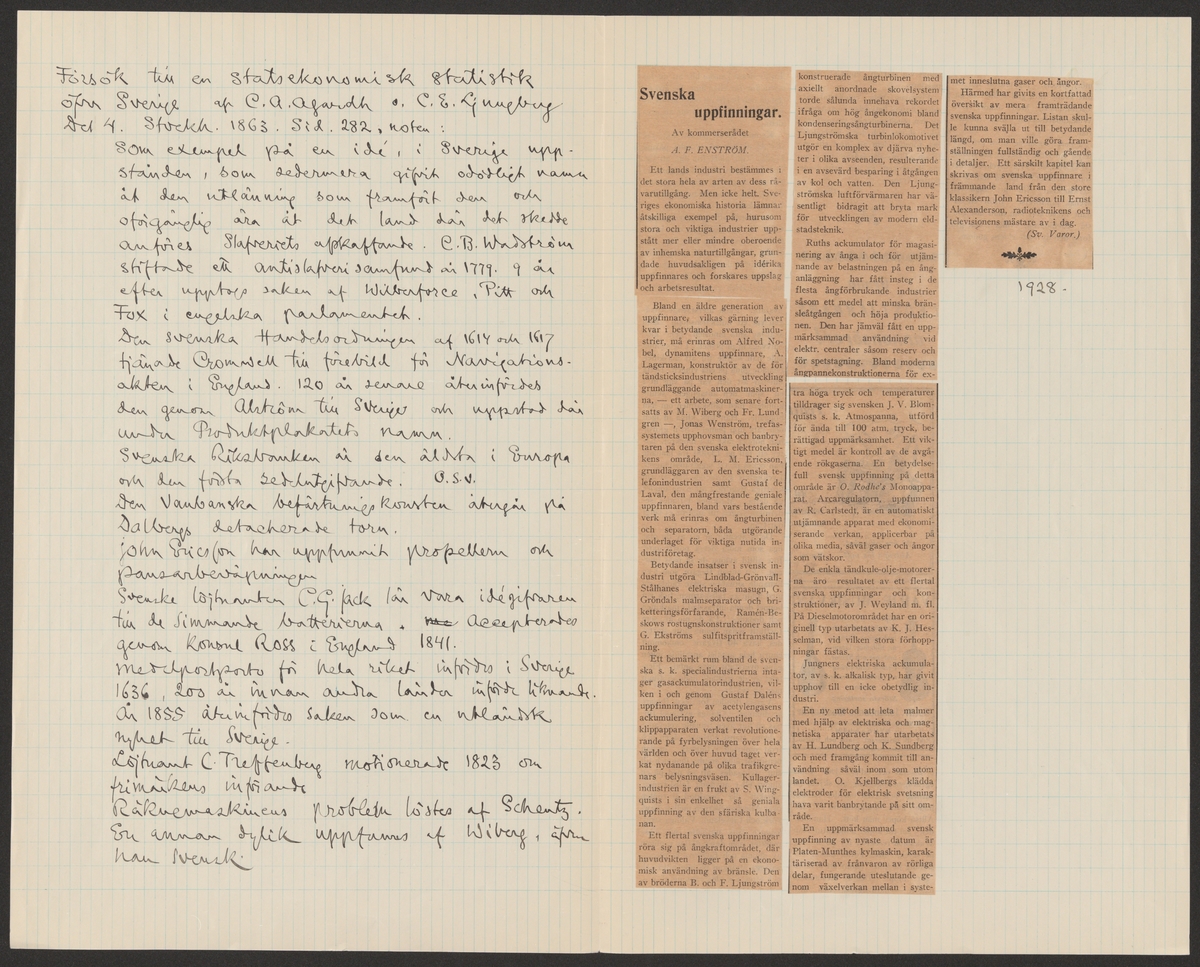 Försök till en statsekonomisk statistik
öfver Sverige af C. A. Agardh o. C. E. Ljungberg
Del 4. Stockh. 1863. Sid. 282, noten:
Som exempel på en idé, i Sverige upp-
stånden, som sedermera gifvit odödligt namn
åt den utlänning som framfört den och
oförgänglig ära åt det land där det skedde
anföres Slafveriets afskaffande. C. B. Wadström
stiftade ett antislafveri samfund år 1779. 9 år
efter upptogs saken af Wilberforce, Pitt och
Fox i engelska parlamentet.
Den svenska Handelsordningen af 1614 och 1617
tjänade Cromwell till förebild för Navigations-
akten i England. 120 år senare återinfördes
den genom Alström till Sverige och uppstod där
under Produktplakatets namn.
Svenska Riksbanken är den äldsta i Europa
och den första sedelutgifvande. O.S.v.
Den Vaubanska befästningskonsten återgår på
Dalbergs detacherade torn.
John Ericsson har uppfunnit propellern och
pansarbeväpningen
Svenske löjtnanten C. G. Jack lär vara idégifvaren
till de simmande batterierna. Accepterades
genom konsul Ross i England 1841.
Medelportporto för hela riket infördes i Sverige
1636, 200 år innan andra länder införde liknande.
År 1855 återinfördes saken som en utländsk
nyhet till Sverige.
Löjtnant C. Treffenberg motionerade 1823 om
frimärkens införande
Räknemaskinens problem löstes af Scheutz.
En annan dylik uppfanns af Wiberg, äfven
han svensk.
Svenska
uppfinningar.
Av kommerserådet
A. F. ENSTRÖM.
Ett lands industri bestämmes i
det stora hela av arten av dess rå-
varutillgång. Men icke helt. Sve-
riges ekonomiska historia lämnar
åtskilliga exempel på, hurusom
stora och viktiga industrier upp-
stått mer eller mindre oberoende
av inhemska naturtillgångar, grun-
dade huvudsakligen på idérika
uppfinnares och forskares uppslag
och arbetsresultat.
Bland en äldre generation av
uppfinnare, vilkas gärning lever
kvar i betydande svenska indu-
strier, må erinras om Alfred No-
bel, dynamitens uppfinnare, A.
Lagerman, konstruktör av de för
tändsticksindustriens utveckling
grundläggande automatmaskiner-
na, — ett arbete, som senare fort-
satts av M. Wiberg och Fr. Lund-
gren —, Jonas Wenström, trefas-
systemets upphovsman och banbry-
taren på den svenska elektrotekni-
kens område, L. M. Ericsson,
grundläggaren av den svenska te-
lefonindustrien samt Gustaf de
Laval, den mångfrestande geniale
uppfinnaren, bland vars bestående
verk må erinras om ångturbinen
och separatorn, båda utgörande
underlaget för viktiga nutida in-
dustriföretag.
Betydande insatser i svensk in-
dustri utgöra Lindblad-Grönvall-
Stålhanes elektriska masugn, G.
Gröndals malmseparator och bri-
ketteringsförfarande, Ramén-Be-
skows rostugnskonstruktioner samt
G. Ekströms sulfitspritframställ-
ning.
Ett bemärkt rum bland de sven-
ska s. k. specialindustrierna inta-
ger gasackumulatorindustrien, vil-
ken i och genom Gustaf Daléns
uppfinningar av acetylengasens
ackumulering, solventilen och
klippapparaten verkat revolutione-
rande på fyrbelysningen över hela
världen och över huvud taget ver-
kat nydanande på olika trafikgre-
nars belysningsväsen. Kullager-
industrien är en frukt av S. Wing-
quists i sin enkelhet så geniala
uppfinning av den sfäriska kulba-
nan.
Ett flertal svenska uppfinningar
röra sig på ångkraftområdet, där
huvudvikten ligger på en ekono-
misk användning av bränsle. Den
av bröderna B. och F. Ljungström
konstruerade ångturbinen med
axiellt anordnade skovelsystem
torde sålunda innehava rekordet
ifråga om hög ångekonomi bland
kondenseringsångturbinerna. Det
Ljungströmska turbinlokomotivet
utgör en komplex av djärva nyhe-
ter i olika avseenden, resulterande
i en avsevärd besparing i åtgången
av kol och vatten. Den Ljung-
strömska luftförvärmaren har vä-
sentligt bidragit att bryta mark
för utvecklingen av modern eld-
stadsteknik.
Ruths ackumulator för magasi-
nering av ånga i och för utjäm-
nande av belastningen på en ång-
anläggning har fått insteg i de
flesta ångförbrukande industrier
såsom ett medel att minska brän-
sleåtgången och höja produktio-
nen. Den har jämväl fått en upp-
märksammad användning vid
elektr. centraler såsom reserv och
för spetstagning. Bland moderna
ångpannekonstruktionerna för ex-
tra höga tryck och temperaturer
tilldrager sig svensken J. V. Blom-
quists s. k. Atmospanna, utförd
för ända till 100 atm. tryck, be-
rättigad uppmärksamhet. Ett vik-
tigt medel är kontroll av de avgå-
ende rökgaserna. En betydelse-
full svensk uppfinning på detta
område är O. Rodhe's Monoappa-
rat. Arcaregulatorn, uppfunnen
av R. Carlstedt, är en automatiskt
utjämnande apparat med ekonomi-
serande verkan, applicerbar på
olika media, såväl gaser och ångor
som vätskor.
De enkla tändkule-olje-motorer-
na äro resultatet av ett flertal
svenska uppfinningar och kon-
struktioner, av J. Weyland m. fl.
På Dieselmotorområdet har en ori-
ginell typ utarbetats av K. J. Hes-
selman, vid vilken stora förhopp-
ningar fästas.
Jungners elektriska ackumula-
tor, av s. k. alkalisk typ, har givit
upphov till en icke obetydlig in-
dustri.
En ny metod att leta malmer
med hjälp av elektriska och mag-
netiska apparater har utarbetats
av H. Lundberg och K. Sundberg
och med framgång kommit till an-
vändning såväl inom som utom
landet. O. Kjellbergs klädda
elektroder för elektrisk svetsning
hava varit banbrytande på sitt om-
råde.
En uppmärksammad svensk
uppfinning av nyaste datum är
Platen-Munthes kylmaskin, karak-
täriserad av frånvaron av rörliga
delar, fungerande uteslutande ge-
nom växelverkan mellan i syste-
met inneslutna gaser och ångor.
Härmed har givits en kortfattad
översikt av mera framträdande
svenska uppfinningar. Listan skul-
le kunna svälja ut till betydande
längd, om man ville göra fram-
ställningen fullständig och gående
i detaljer. Ett särskilt kapitel kan
skrivas om svenska uppfinnare i
främmande land från den store
klassikern John Ericsson till Ernst
Alexanderson, radioteknikens och
televisionens mästare av i dag.
(Sv. Varor.)
1928.